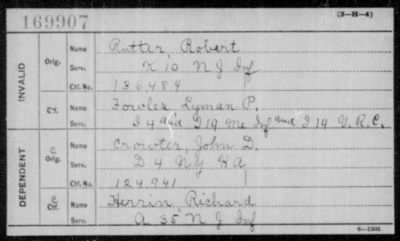 169907
(3-H-4)
INVALID
Orig.
Name Rutter, Robert
Serv. K 10 N J Inf
Ctf. No. 136484
Ctf.
Name Fowles, Lyman P.
Serv. I 4 and I 19 Me Inf and I 14 V.R.C.
DEPENDENT
C Orig.
Name Crowter, John D.
Serv. D 4 N Y H A
Ctf. No. 124941
C Ctf.
Name Herrin Richard
Serv. A 35 N J Inf
6-1303